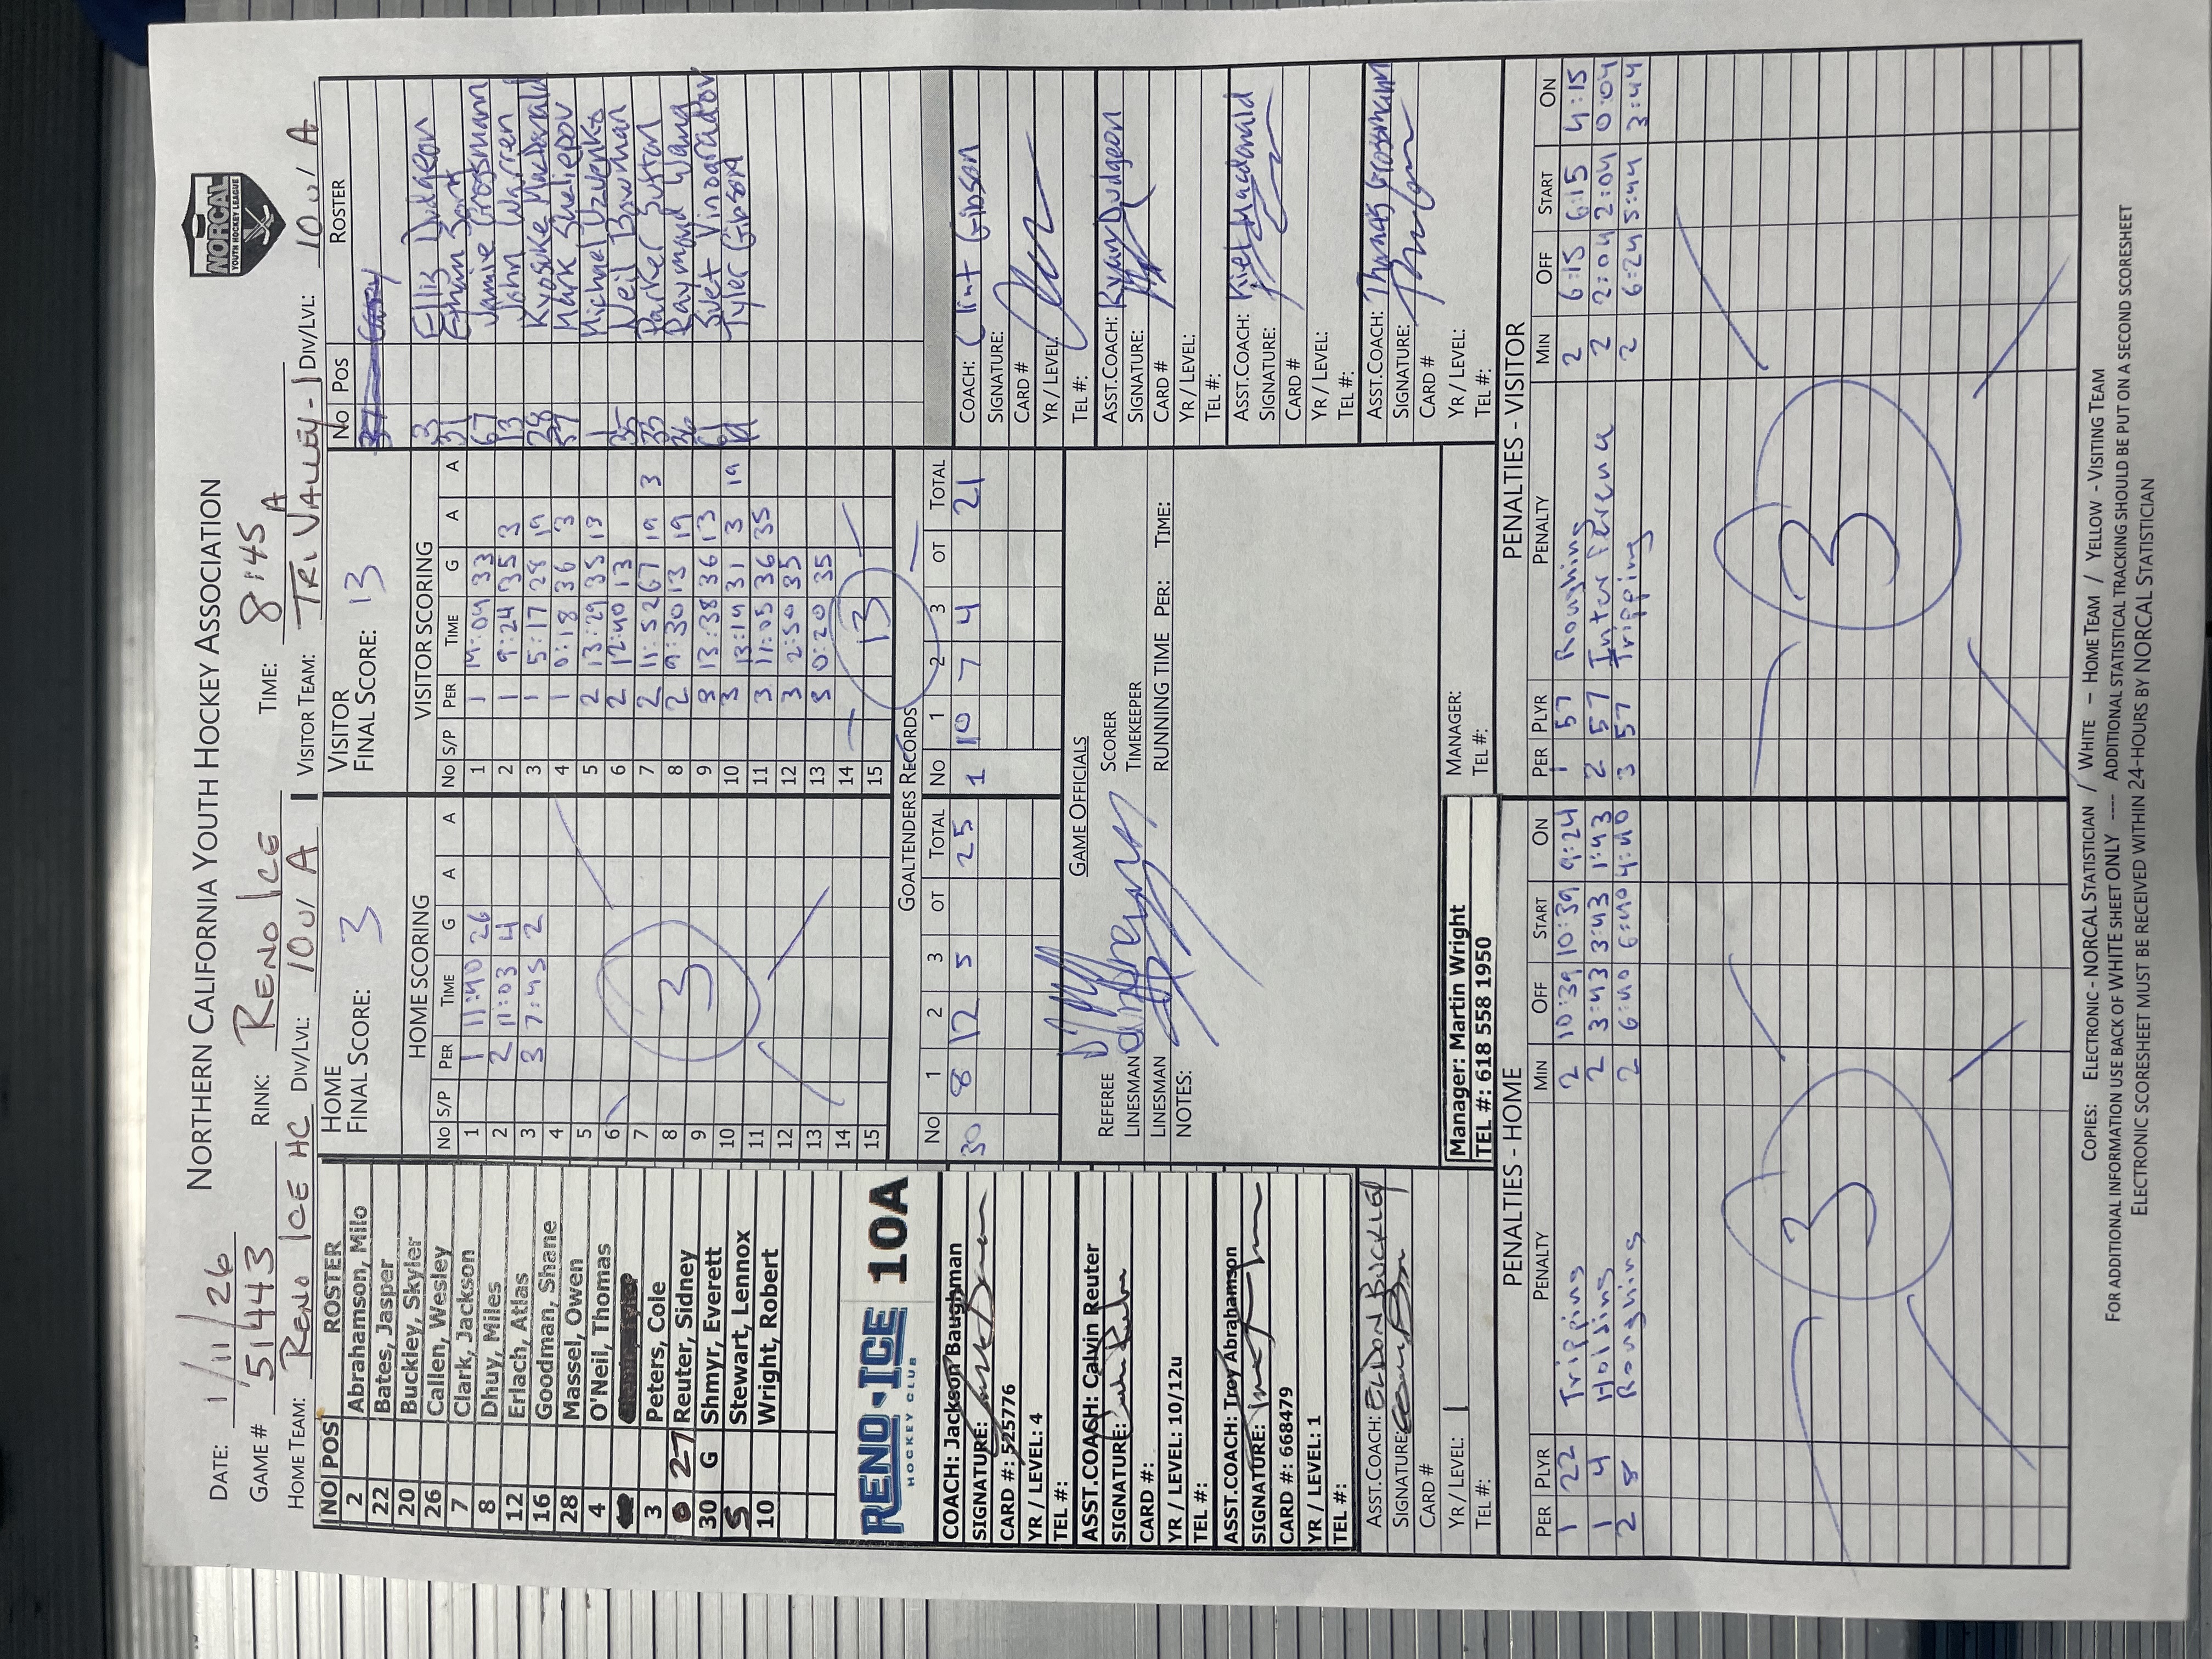 NORTHERN CALIFORNIA YOUTH HOCKEY ASSOCIATION
NORCAL
YOUTH HOCKEY LEAGUE
DATE: 1/11/26
GAME # 51443 RINK: RENO ICE TIME: 8:45 A
HOME TEAM: RENO ICE HC DIV/LVL: 10U A VISITOR TEAM: TRI VALLEY-1 DIV/LVL: 10U A
NO POS ROSTER
2 Abrahamson, Milo
22 Bates, Jasper
20 Buckley, Skyler
26 Callen, Wesley
7 Clark, Jackson
8 Dhuy, Miles
12 Erlach, Atlas
16 Goodman, Shane
28 Massel, Owen
4 O'Neil, Thomas
3 Peters, Cole
27 Reuter, Sidney
30 G Shmyr, Everett
5 Stewart, Lennox
10 Wright, Robert
RENO ICE 10A
HOCKEY CLUB
COACH: Jackson Baughman
SIGNATURE:
CARD #: 525776
YR / LEVEL: 4
TEL #:
ASST.COASH: Calvin Reuter
SIGNATURE:
CARD #:
YR / LEVEL: 10/12u
TEL #:
ASST.COACH: Troy Abrahamson
SIGNATURE:
CARD #: 668479
YR / LEVEL: 1
TEL #:
ASST.COACH: ELDON BUCKLEY
SIGNATURE:
CARD #
YR / LEVEL: 1
TEL #:
HOME
FINAL SCORE: 3
HOME SCORING
NO S/P PER TIME G A A
1 1 11:40 26
2 2 11:03 4
3 3 7:45 2
4
5
6
7
8
9
10
11
12
13
14
15
3
VISITOR
FINAL SCORE: 13
VISITOR SCORING
NO S/P PER TIME G A A
1 1 14:09 33
2 1 9:24 35 3
3 1 5:17 28 19
4 1 0:18 36 3
5 2 13:29 35 13
6 2 12:40 13
7 2 11:52 67 19 3
8 2 9:30 13 19
9 3 13:38 36 13
10 3 13:14 31 3 19
11 3 11:05 36 35
12 3 2:50 35
13 3 0:20 35
14
15
13
NO POS ROSTER
3 Ellis Dudgeon
31 Ethan
67 Jamie Grossmann
13 John Warren
28 Kyosuke Macdonald
57 Mark Sheliepov
1 Michael Uzvenko
35 Neil Bowman
33 Parker Sutton
36 Raymond Wang
61 Svet Vinogradov
Tyler Gibson
GOALTENDERS RECORDS
NO 1 2 3 OT TOTAL NO 1 2 3 OT TOTAL
30 8 12 5 25 1 10 7 4 21
GAME OFFICIALS
REFEREE SCORER
LINESMAN TIMEKEEPER
LINESMAN RUNNING TIME PER: TIME:
NOTES:
Manager: Martin Wright
TEL #: 618 558 1950
MANAGER:
TEL #:
COACH: Clint Gibson
SIGNATURE:
CARD #
YR / LEVEL:
TEL #:
ASST.COACH: Ryan Dudgeon
SIGNATURE:
CARD #
YR / LEVEL:
TEL #:
ASST.COACH: Kiel Macdonald
SIGNATURE:
CARD #
YR / LEVEL:
TEL #:
ASST.COACH: Thomas Grossmann
SIGNATURE:
CARD #
YR / LEVEL:
TEL #:
PENALTIES - HOME
PER PLYR PENALTY MIN OFF START ON
1 22 Tripping 2 10:39 10:39 9:24
1 4 Holding 2 3:43 3:43 1:43
2 8 Roughing 2 6:40 6:40 4:40
3
PENALTIES - VISITOR
PER PLYR PENALTY MIN OFF START ON
1 57 Roughing 2 6:15 6:15 4:15
2 57 Interference 2 2:04 2:04 0:04
3 57 Tripping 2 6:24 5:44 3:44
3
COPIES: ELECTRONIC - NORCAL STATISTICIAN / WHITE – HOME TEAM / YELLOW - VISITING TEAM
FOR ADDITIONAL INFORMATION USE BACK OF WHITE SHEET ONLY ---- ADDITIONAL STATISTICAL TRACKING SHOULD BE PUT ON A SECOND SCORESHEET
ELECTRONIC SCORESHEET MUST BE RECEIVED WITHIN 24-HOURS BY NORCAL STATISTICIAN